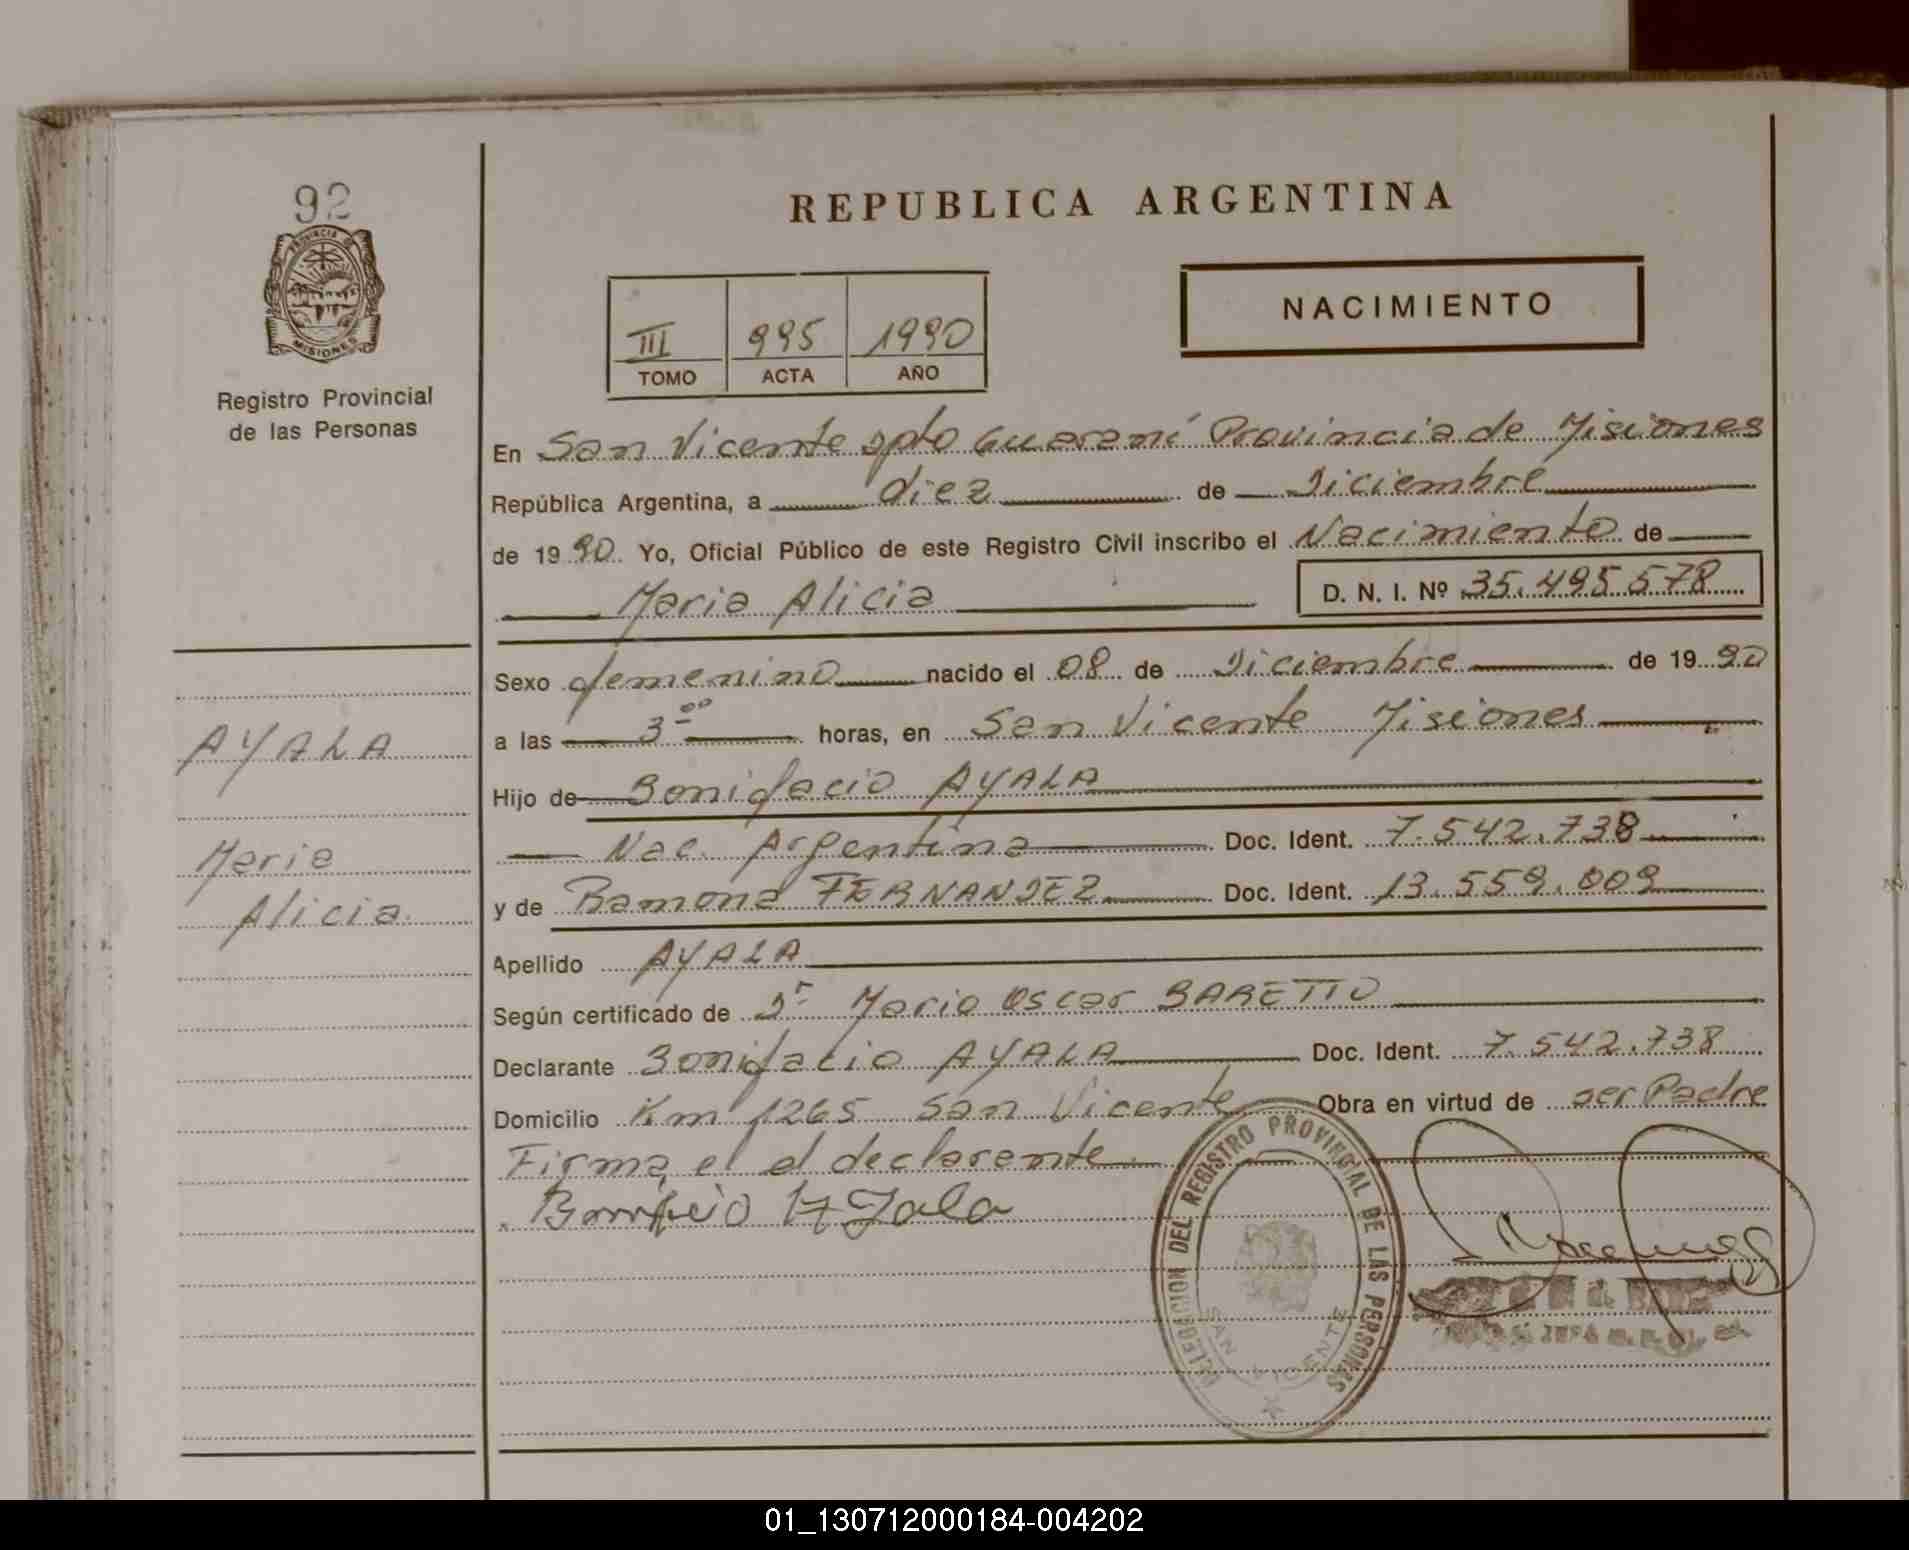 92
PROVINCIA DE
MISIONES
Registro Provincial
de las Personas
AYALA
Maria
Alicia.
REPUBLICA ARGENTINA
NACIMIENTO
III 995 1990
TOMO ACTA AÑO
En San Vicente Dpto Guaraní Provincia de Misiones
República Argentina, a diez de Diciembre
de 1990. Yo, Oficial Público de este Registro Civil inscribo el Nacimiento de
Maria Alicia D. N. I. Nº 35.495.578
Sexo femenino nacido el 08 de Diciembre de 1990
a las 3ºº horas, en San Vicente Misiones
Hijo de Bonifacio AYALA
Nac. Argentina Doc. Ident. 7.542.738
y de Ramona FERNANDEZ Doc. Ident. 13.559.009
Apellido AYALA
Según certificado de Dr Mario Oscar BARETTO
Declarante Bonifacio AYALA Doc. Ident. 7.542.738
Domicilio Km 1265 San Vicente Obra en virtud de ser Padre
Firma el declarante
DELEGACION DEL REGISTRO PROVINCIAL DE LAS PERSONAS
SAN VICENTE
01_130712000184-004202